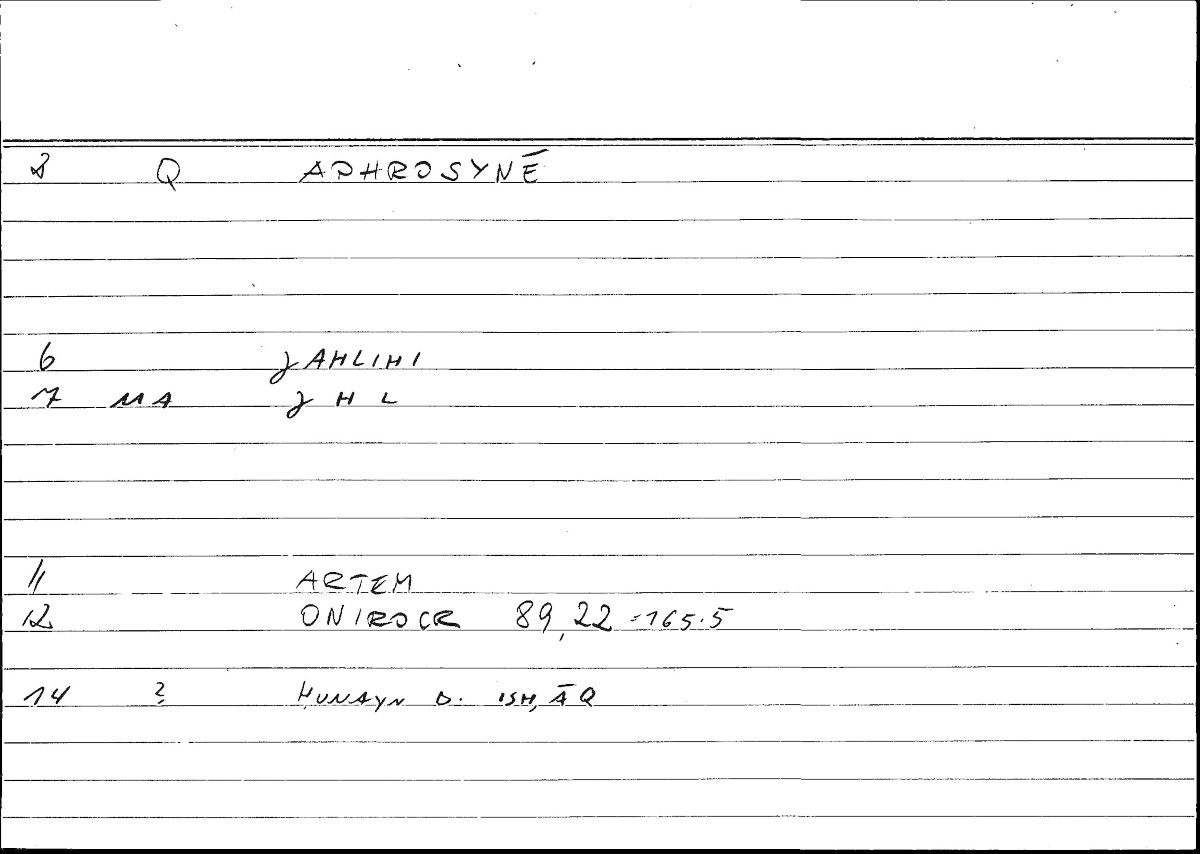 2 Q APHROSYNĒ
6 JAHLIHI
7 MA J H L
11 ARTEM
12 ONIROCR 89,22 = 165.5
14 ? ḤUNAYN B. ISḤĀQ